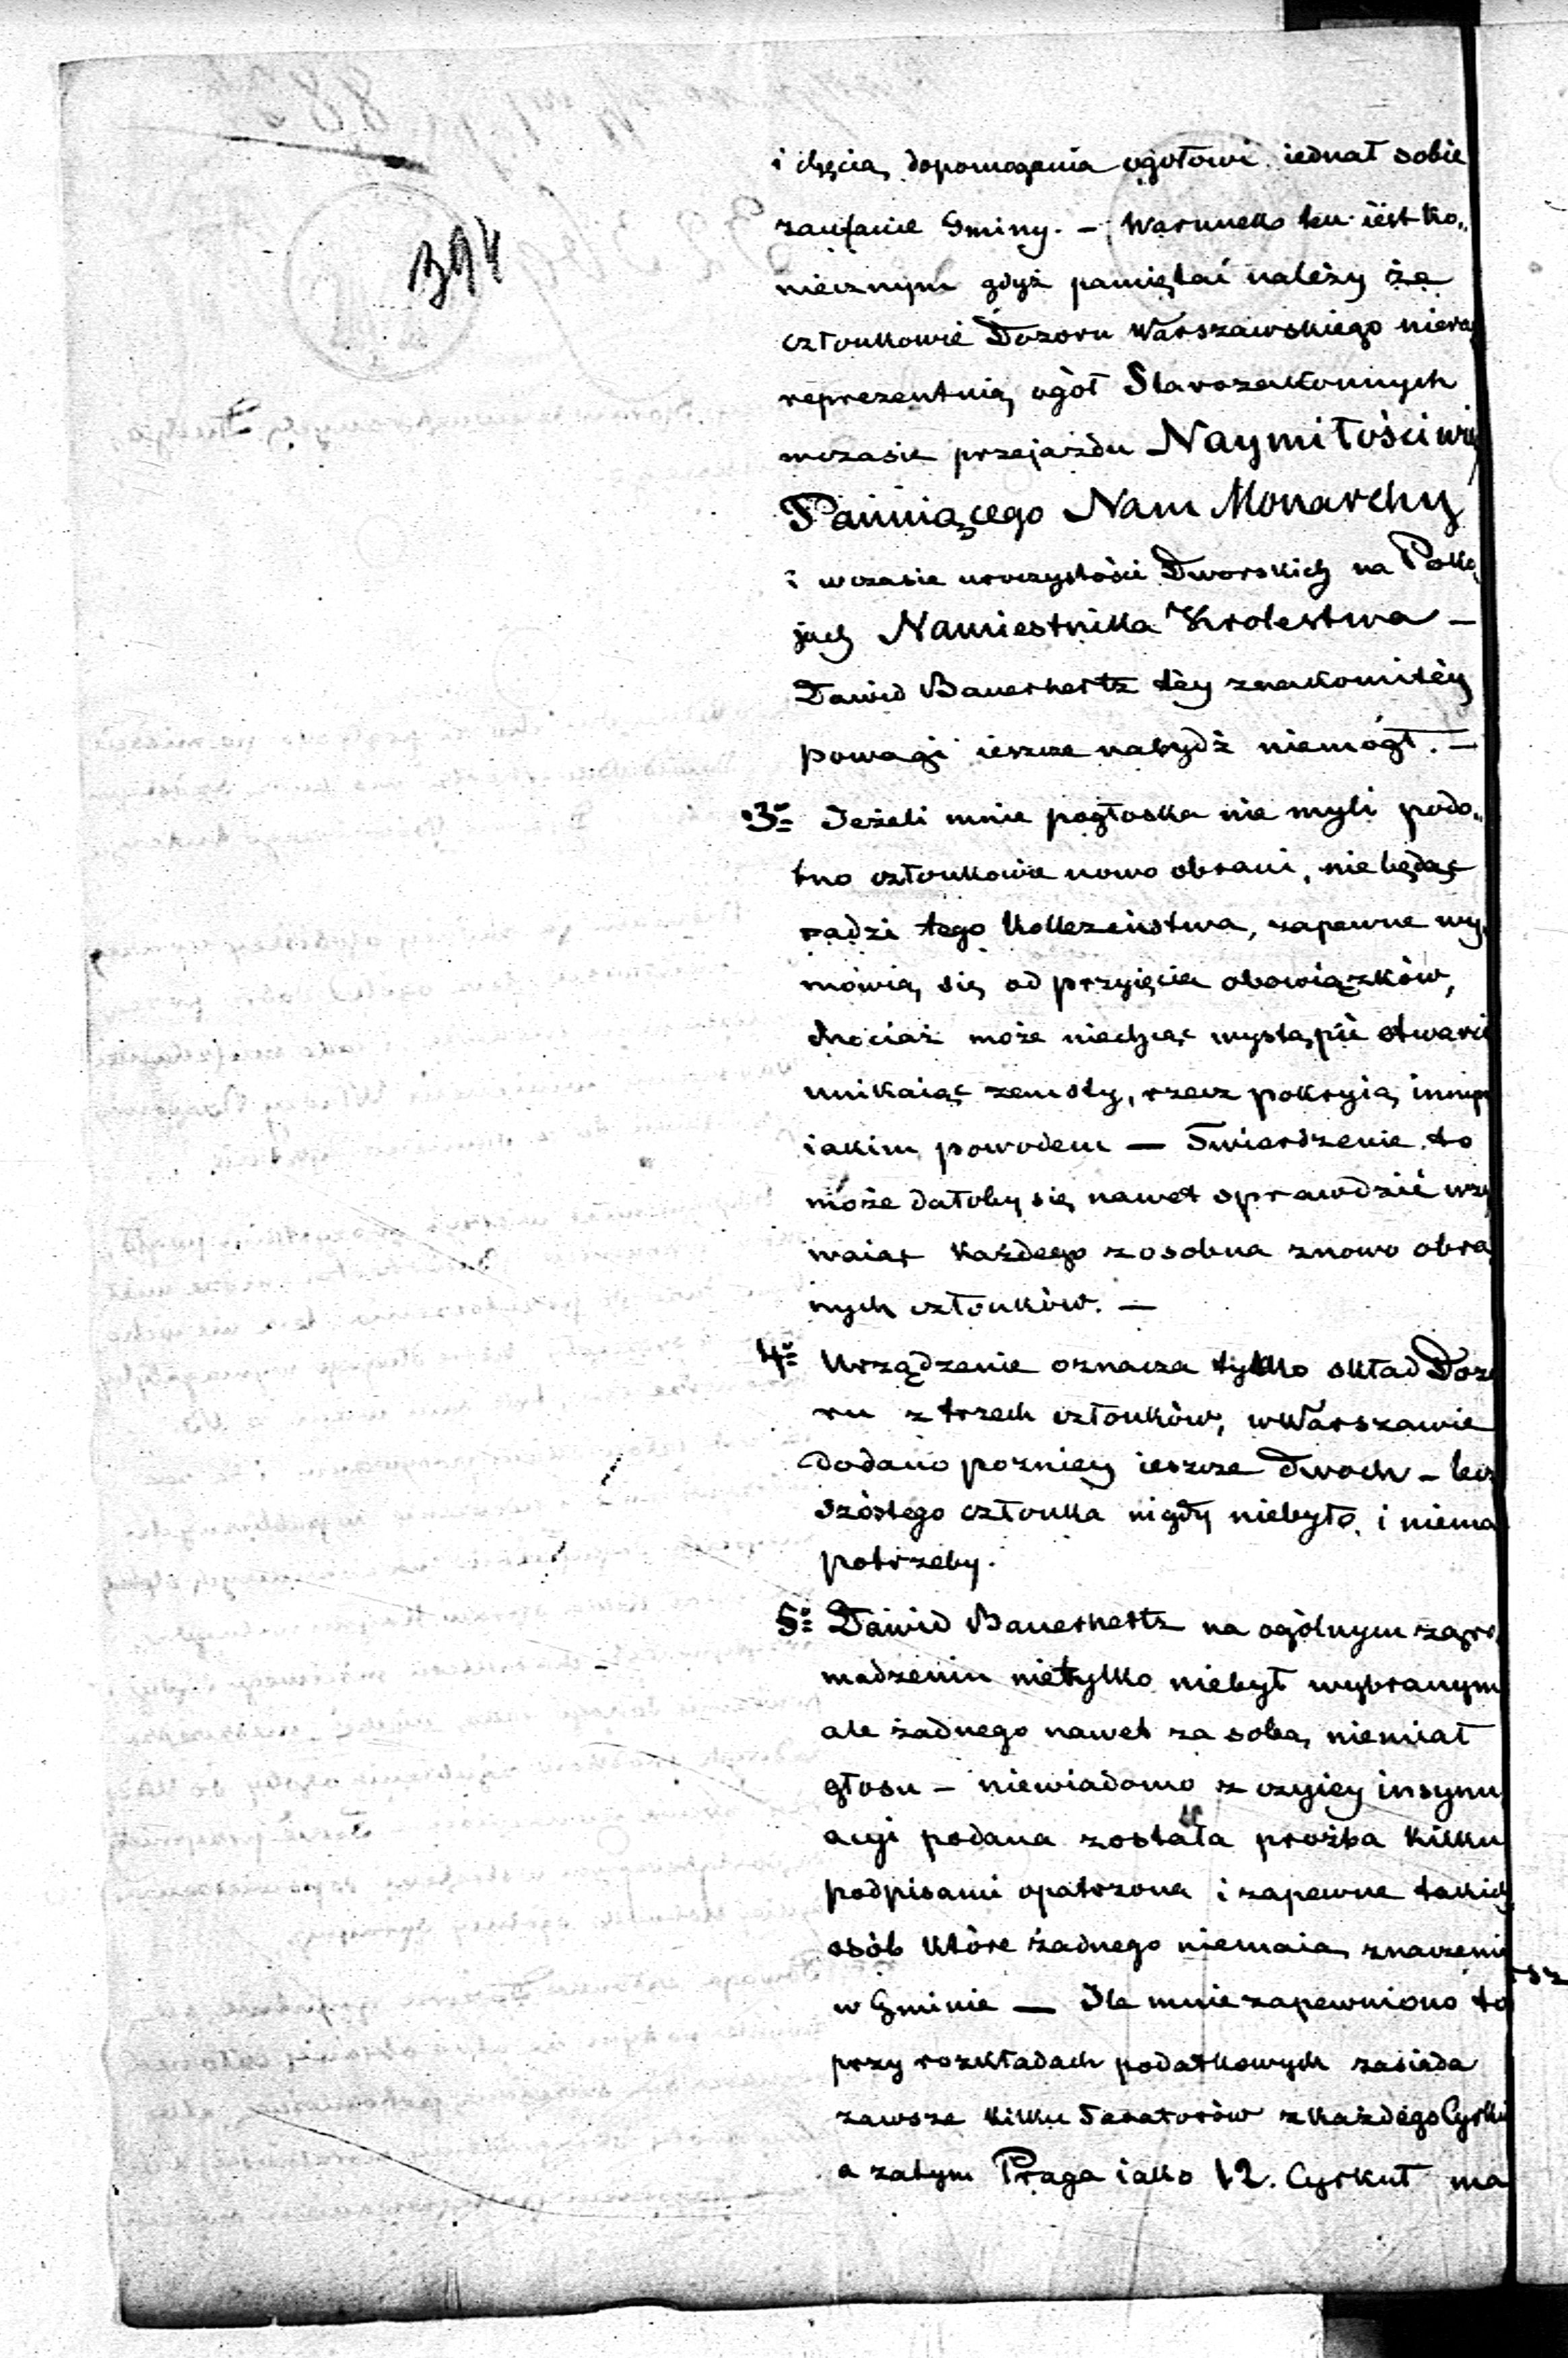 394
i chęcią dopomagania ogołowi iednał sobie
zaufanie Gminy. — Warunek ten iest ko„
niecznym gdyż pamiętać należy że
członkowie Dozoru Warszawskiego nieraz
reprezentuią ogół Starozakonnych
wczasie przejazdu Naymiłościwi
Panuiącego Nam Monarchy
i wczasie uroczystości Dworskich na Poko
jach Namiestnika Krolestwa —
Dawid Bauerhertz téy znakomitéy
powagi ieszcze nabydź niemógł. —
3º Jeżeli mnie pogłoska nie myli podo„
bno członkowie nowo obrani, nie będąc
radzi tego Kolleżeństwa, zapewne wy
mówią się od przyięcia obowiązków,
chociaż może niechcąc wystąpić otwarci
unikaiąc zemsty, rzecz pokryią innym
iakim powodem — Twierdzenie to
może dałoby się nawet sprawdzić wzy
waiąc każdego zosobna znowo obra
nych członków. —
4º Urządzenie oznacza tylko skład Dozo
ru z trzech członków, w Warszawie
dodano pozniey ieszcze dwoch — lecz
szóstego członka nigdy niebyło i niema
potrzeby.
5º Dawid Bauerhertz na ogólnym zgro
madzeniu nietylko niebył wybranym
ale żadnego nawet za sobą niemiał
głosu — niewiadomo z czyiey insynu
acyi podana została prożba kilku
podpisami opatrzona i zapewne takich
osób które żadnego niemaią znaczenia
w Gminie — Ile mnie zapewniono to
przy rozkładach podatkowych zasiada
zawsze kilku Taxatorów z każdego Cyrku
a zatym Praga iako 12. Cyrkuł ma